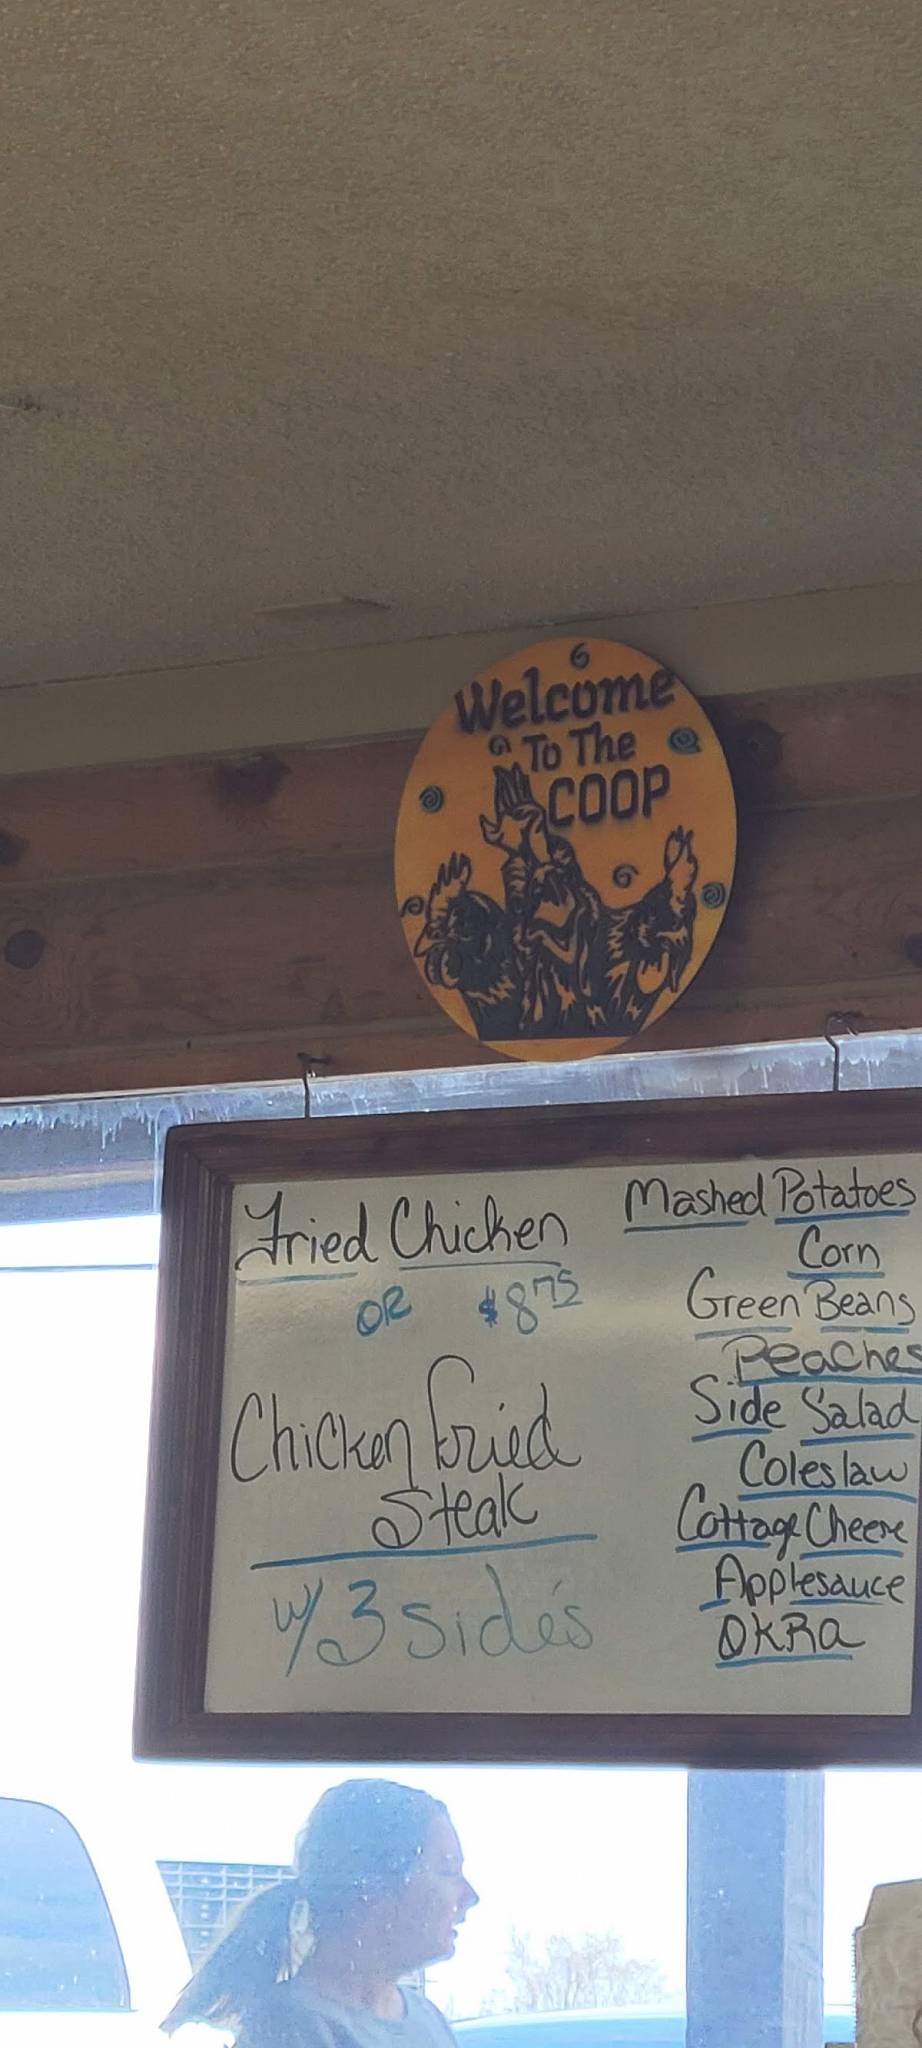 Welcome
To The
COOP
Fried Chicken
OR $8.75
Chicken Fried
Steak
w/ 3 side's
Mashed Potatoes
Corn
Green Beans
Peaches
Side Salad
Coleslaw
Cottage Cheese
Applesauce
OKRa